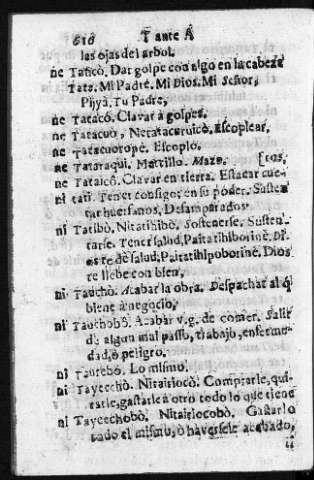 616 Tante A
las ojas del arbol.
ne Tatacò. Dar golpe con algo en la cabeza
Tata. Mi Padre. Mi Dios. Mi Señor,
Piyyà. Tu Padre,
ne Tatacó. Clavar à golpes.
ne Tatacuò, Netatacuruicò. Escoplear,
ne Tatacuoropè. Escoplo.
ne Tataraqui. Martillo. Mazo.
ne Tataicò. Clavar en tierra. Estacar cue-
[ros,
ni tati. Tener consigo: en su poder. Susten
tar huerfanos, Desamparados
ni Tatibò, Nitatihibò. Sostenerse. Susten-
tarse. Tener salud, Paitatihiborinè. Di-
os te dè salud, Paitatihipoborinè. Dios
te llebe con bien,
ni Tauchò. Acabar la obra. Despachar al q̃
biene à negocio,
ni Tauchobò. Acabar v.g. de comer. Salir
de algun mal paso, trabajo, enferme-
dad, ò peligro.
ni Taurebò. Lo mismo.
ni Tayeechò. Nitairiocò. Comprarle, qui-
tarle, gastarle à otro todo lo que tiene
ni Tayeechobò. Nitairiocobò. Gastarlo
todo el mismo, ò haversele acabado,